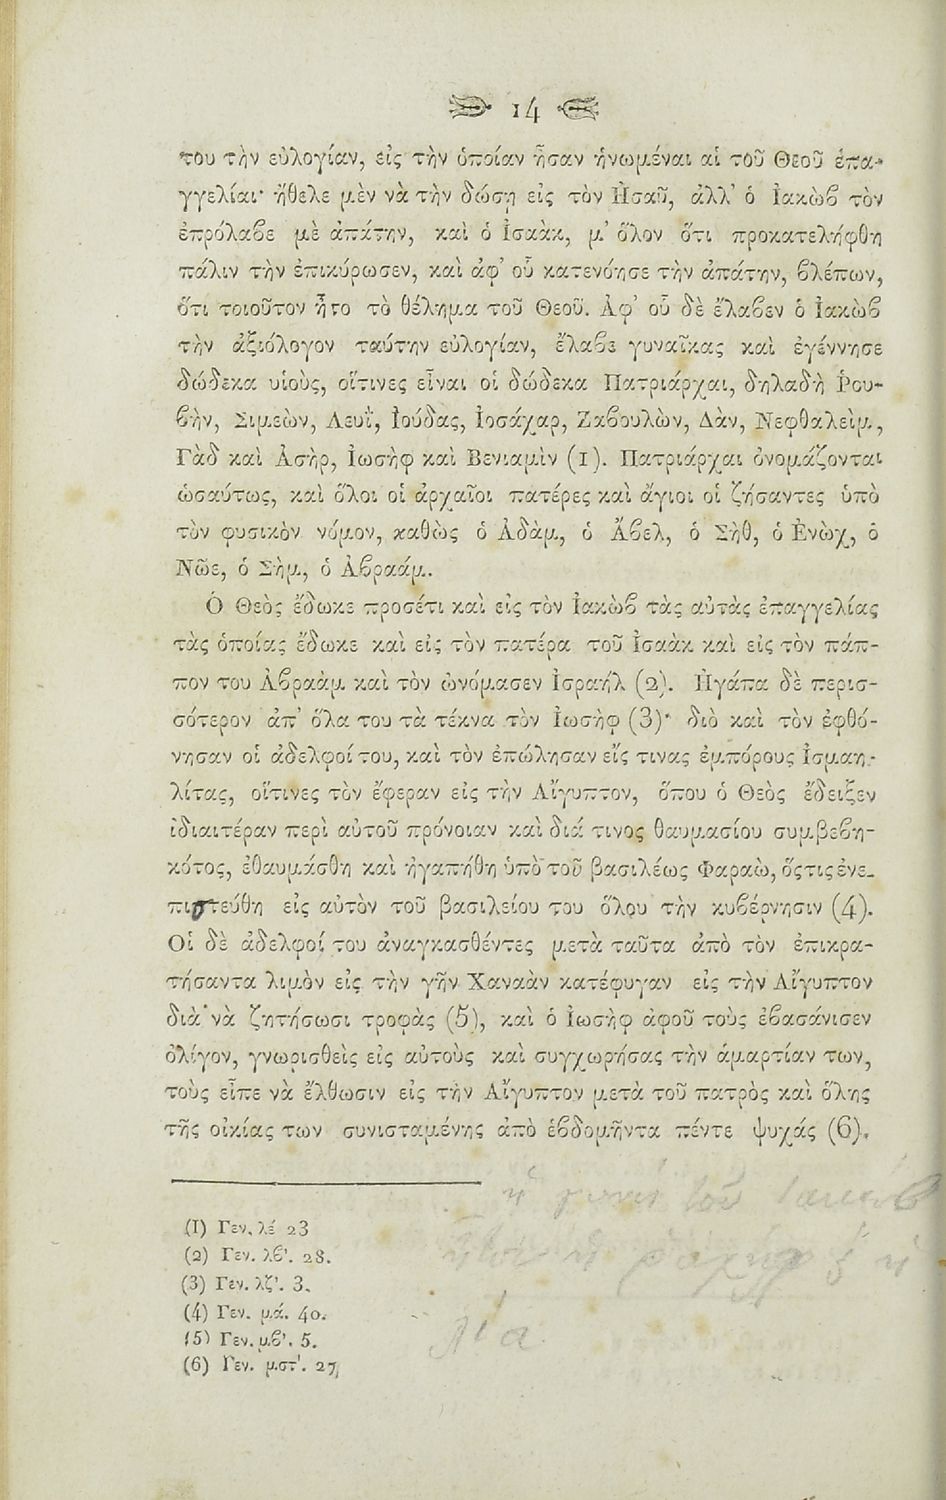 14
του τὴν εὐλογίαν, εἰς τὴν ὁποίαν ἦσαν ἡνωμέναι αἱ τοῦ Θεοῦ ἐπα-
γγελίαι· ἤθελε μὲν νὰ τὴν δώσῃ εἰς τὸν Ἠσαῦ, ἀλλ' ὁ Ἰακὼβ τὸν
ἐπρόλαβε μὲ ἀπάτην, καὶ ὁ Ἰσαὰκ, μ' ὅλον ὅτι προκατελήφθη
πάλιν τὴν ἐπικύρωσεν, καὶ ἀφ' οὗ κατενόησε τὴν ἀπάτην, βλέπων,
ὅτι τοιοῦτον ἦτο τὸ θέλημα τοῦ Θεοῦ. Ἀφ' οὗ δὲ ἔλαβεν ὁ Ἰακὼβ
τὴν ἀξιόλογον ταύτην εὐλογίαν, ἔλαβε γυναῖκας καὶ ἐγέννησε
δώδεκα υἱοὺς, οἵτινες εἶναι οἱ δώδεκα Πατριάρχαι, δηλαδὴ Ῥου-
βὴν, Σιμεὼν, Λευῒ, Ἰούδας, Ἰοσάχαρ, Ζαβουλὼν, Δὰν, Νεφθαλεὶμ,
Γὰδ καὶ Ἀσὴρ, Ἰωσὴφ καὶ Βενιαμὶν (1). Πατριάρχαι ὀνομάζονται
ὡσαύτως, καὶ ὅλοι οἱ ἀρχαῖοι πατέρες καὶ ἅγιοι οἱ ζήσαντες ὑπὸ
τὸν φυσικὸν νόμον, καθὼς ὁ Ἀδὰμ, ὁ Ἄβελ, ὁ Σὴθ, ὁ Ἐνὼχ, ὁ
Νῶε, ὁ Σὴμ, ὁ Ἀβραάμ.
Ὁ Θεὸς ἔδωκε προσέτι καὶ εἰς τὸν Ἰακὼβ τὰς αὐτὰς ἐπαγγελίας
τὰς ὁποίας ἔδωκε καὶ εἰς τὸν πατέρα τοῦ Ἰσαὰκ καὶ εἰς τὸν πάπ-
πον του Ἀβραὰμ καὶ τὸν ὠνόμασεν Ἰσραήλ (2). Ἠγάπα δὲ περισ-
σότερον ἀπ' ὅλα του τὰ τέκνα τὸν Ἰωσὴφ (3)· διὸ καὶ τὸν ἐφθό-
νησαν οἱ ἀδελφοί του, καὶ τὸν ἐπώλησαν εἴς τινας ἐμπόρους Ἰσμαη-
λίτας, οἵτινες τὸν ἔφεραν εἰς τὴν Αἴγυπτον, ὅπου ὁ Θεὸς ἔδειξεν
ἰδιαιτέραν περὶ αὐτοῦ πρόνοιαν καὶ διά τινος θαυμασίου συμβεβη-
κότος, ἐθαυμάσθη καὶ ἠγαπήθη ὑπὸ τοῦ βασιλέως Φαραὼ, ὅςτις ἐνε-
πιστεύθη εἰς αὐτὸν τοῦ βασιλείου του ὅλου τὴν κυβέρνησιν (4).
Οἱ δὲ ἀδελφοί του ἀναγκασθέντες μετὰ ταῦτα ἀπὸ τὸν ἐπικρα-
τήσαντα λιμὸν εἰς τὴν γῆν Χαναὰν κατέφυγαν εἰς τὴν Αἴγυπτον
διὰ νὰ ζητήσωσι τροφὰς (5), καὶ ὁ Ἰωσὴφ ἀφοῦ τοὺς ἐβασάνισεν
ὀλίγον, γνωρισθεὶς εἰς αὐτοὺς καὶ συγχωρήσας τὴν ἁμαρτίαν των,
τοὺς εἶπε νὰ ἔλθωσιν εἰς τὴν Αἴγυπτον μετὰ τοῦ πατρὸς καὶ ὅλης
τῆς οἰκίας των συνισταμένης ἀπὸ ἑβδομῆντα πέντε ψυχάς (6).
(1) Γεν. λέ 23
(2) Γεν. λβ'. 28.
(3) Γεν. λζ'. 3.
(4) Γεν. μά. 40.
(5) Γεν. μβ'. 5.
(6) Γεν. μστ'. 27,